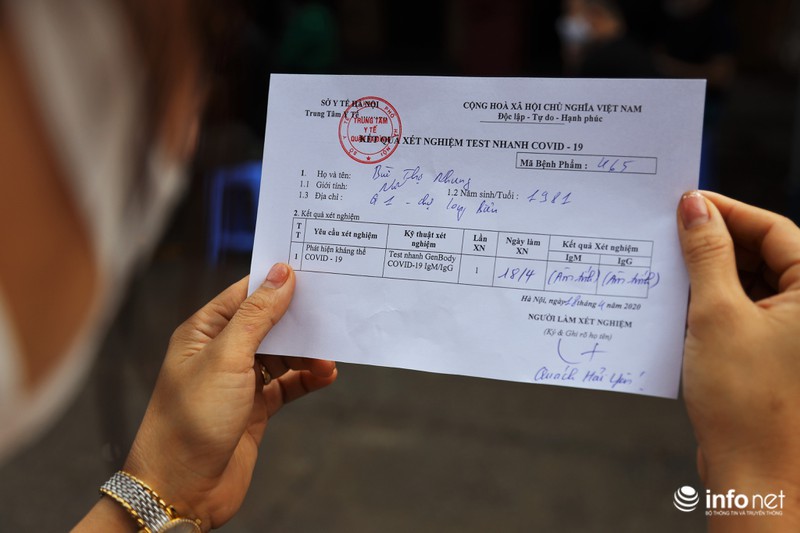 SỞ Y TẾ HÀ NỘI
Trung Tâm Y Tế
CỘNG HOÀ XÃ HỘI CHỦ NGHĨA VIỆT NAM
Độc lập - Tự do - Hạnh phúc
TRUNG TÂM
Y TẾ
KẾT QUẢ XÉT NGHIỆM TEST NHANH COVID - 19
Mã Bệnh Phẩm : 465
1. Họ và tên: Bùi Thị Nhung
1.1 Giới tính: Nữ 1.2 Năm sinh/Tuổi : 1981
1.3 Địa chỉ : G1 - chợ Long Biên
2. Kết quả xét nghiệm
TT Yêu cầu xét nghiệm Kỹ thuật xét nghiệm Lần XN Ngày làm XN Kết quả Xét nghiệm
IgM IgG
1 Phát hiện kháng thể COVID - 19 Test nhanh GenBody COVID-19 IgM/IgG 1 18/4 (Âm tính) (Âm tính)
Hà Nội, ngày 18 tháng 4 năm 2020
NGƯỜI LÀM XÉT NGHIỆM
(Ký & Ghi rõ họ tên)
Quách Hải Yến
infonet
BỘ THÔNG TIN VÀ TRUYỀN THÔNG